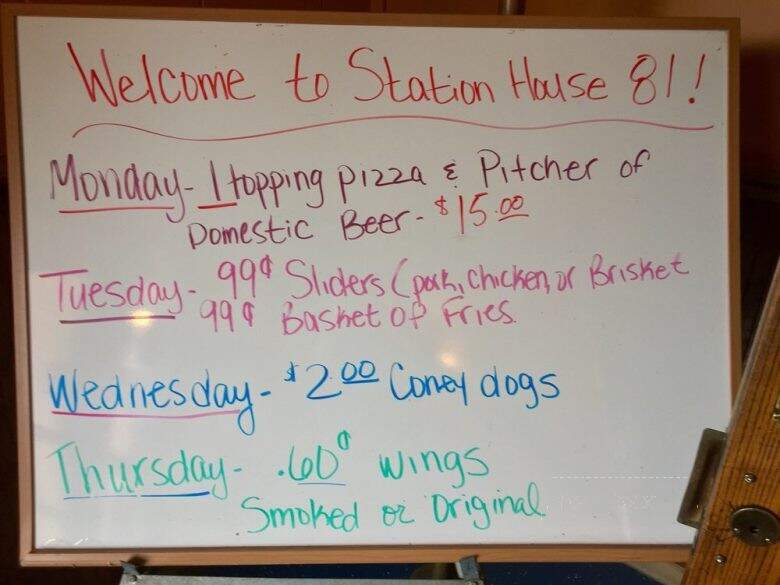 Welcome to Station House 81!
Monday- 1 topping pizza & Pitcher of
Domestic Beer- $15.00
Tuesday- 99¢ Sliders (pork, chicken, or Brisket
99¢ Basket of Fries.
Wednesday- $2.00 Coney dogs
Thursday- .60¢ wings
Smoked or Original